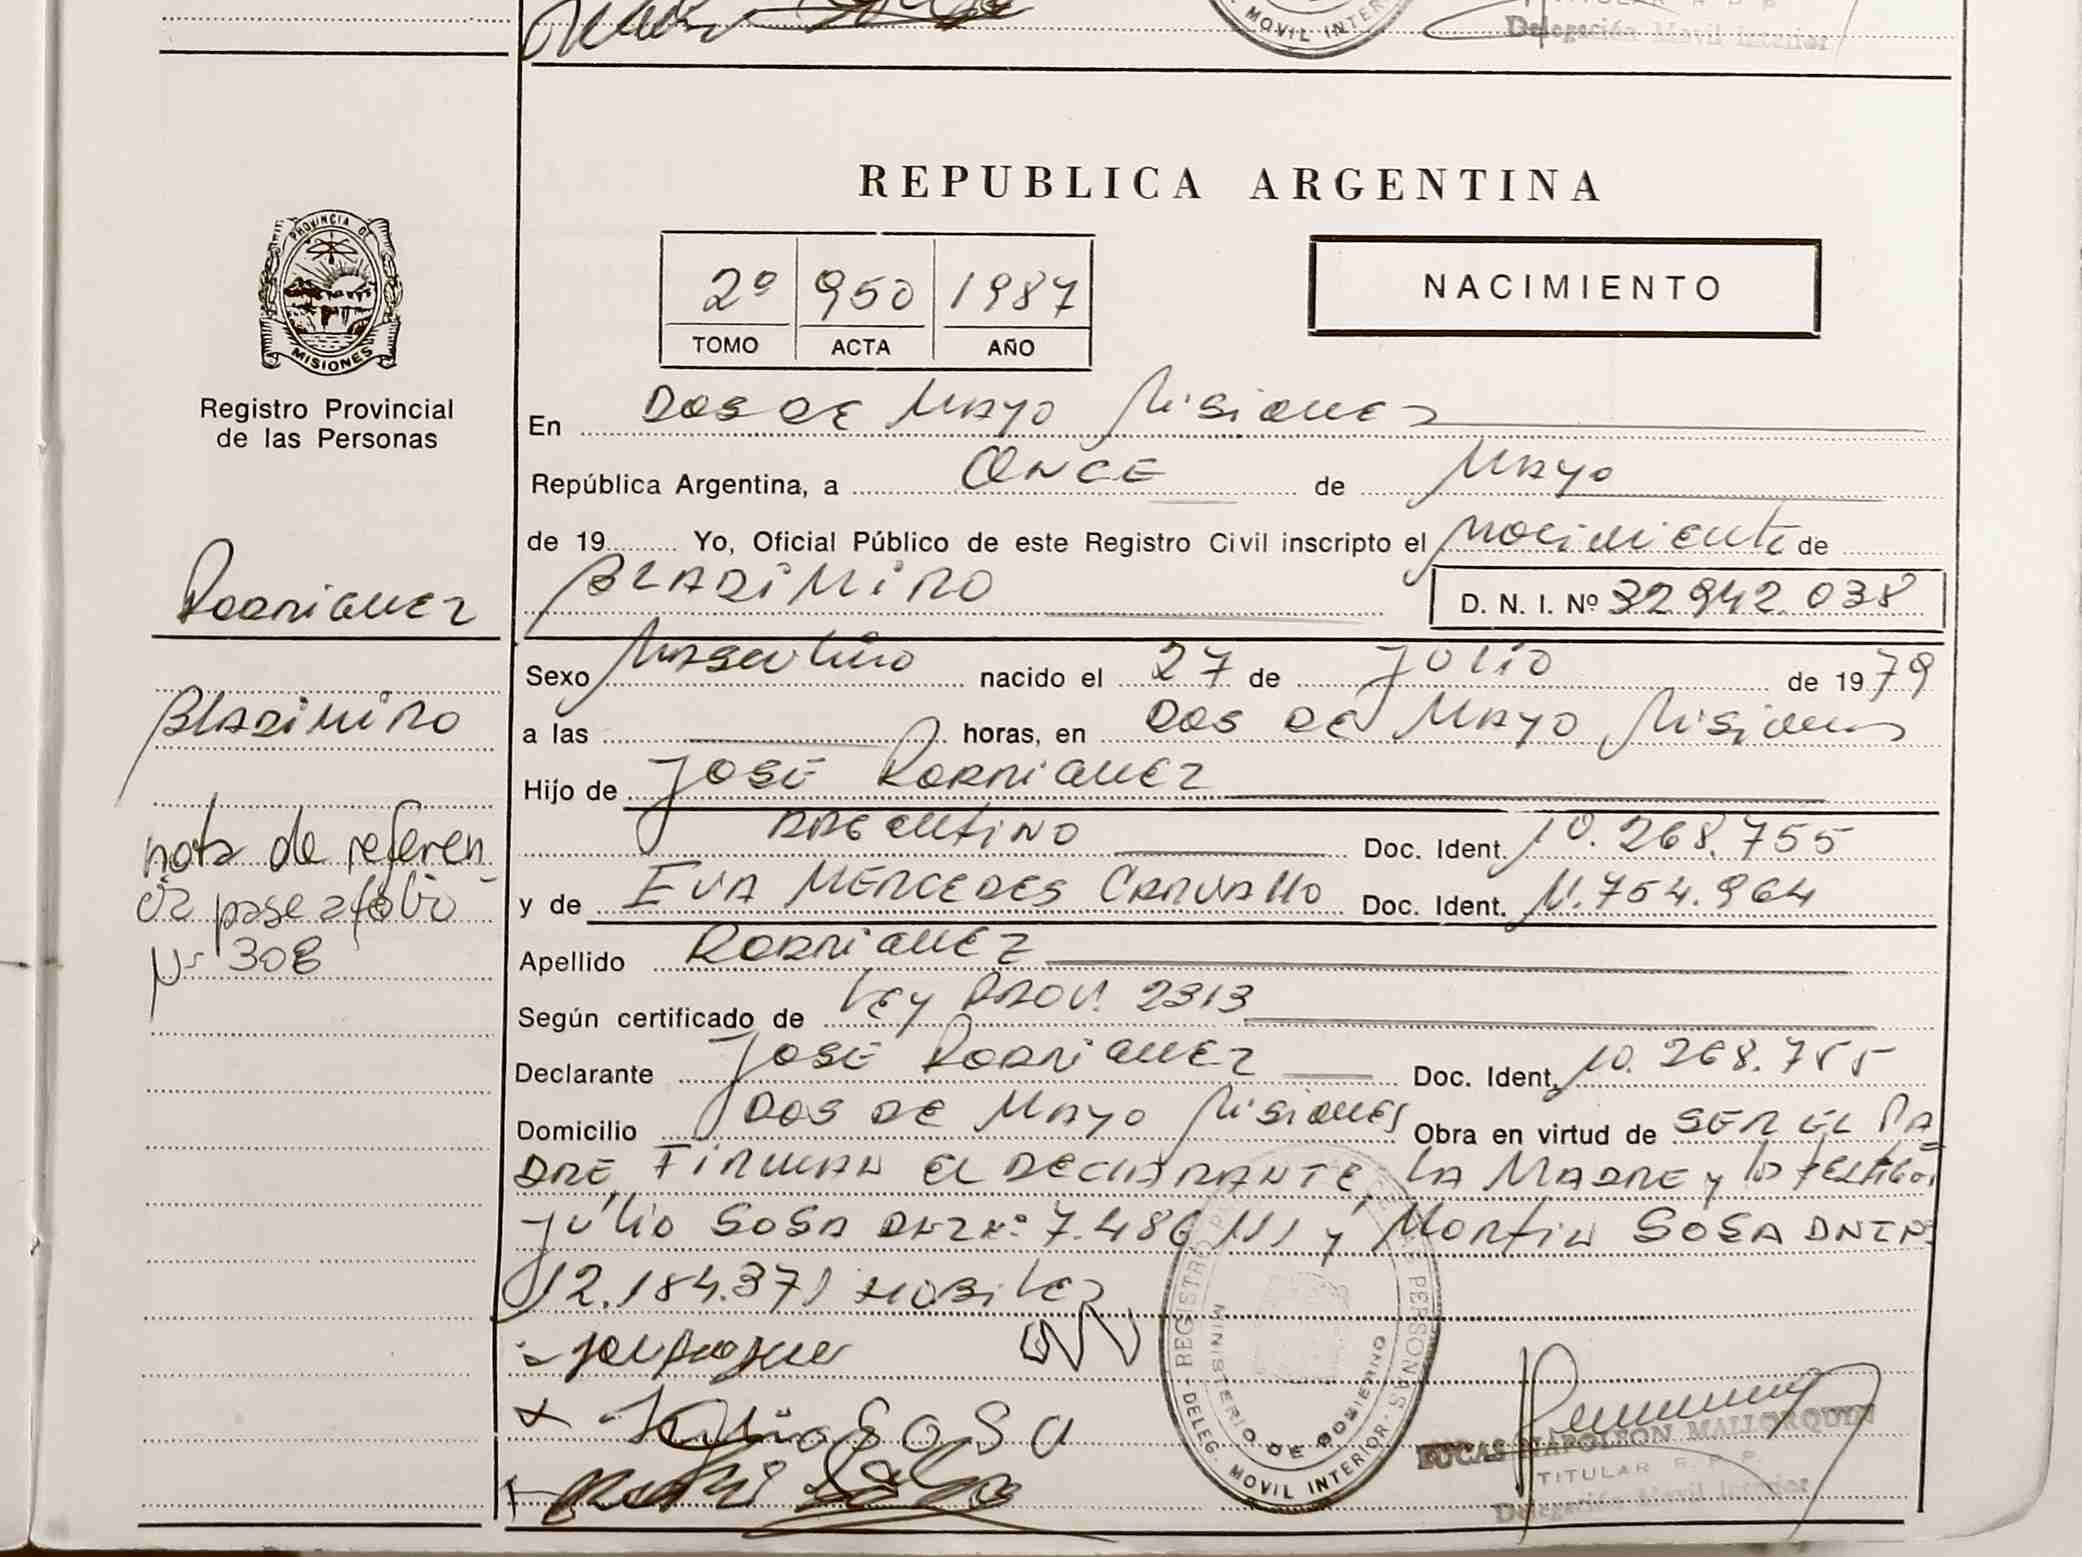 MOVIL INTER
TITULAR R. P. P.
Delegación Movil Interior
REPUBLICA ARGENTINA
PROVINCIA DE
MISIONES
Registro Provincial
de las Personas
2º 950 1987
TOMO ACTA AÑO
NACIMIENTO
En DOS DE MAYO MISIONES
República Argentina, a ONCE de MAYO
de 19 Yo, Oficial Público de este Registro Civil inscripto el Nacimiento de
BLADIMIRO D. N. I. Nº 32.942.038
RODRIGUEZ
BLADIMIRO
nota de referen
cia pase a folio
Nº 308
Sexo Masculino nacido el 27 de JULIO de 1979
a las horas, en DOS DE MAYO MISIONES
Hijo de JOSÉ RODRIGUEZ
ARGENTINO Doc. Ident. 10.268.755
y de EVA MERCEDES CARVALLO Doc. Ident. 11.754.964
Apellido RODRIGUEZ
Según certificado de LEY PROV. 2313
Declarante JOSÉ RODRIGUEZ Doc. Ident. 10.268.755
Domicilio DOS DE MAYO MISIONES Obra en virtud de SER EL PA
DRE, FIRMAN EL DECLARANTE, LA MADRE y los testigos
JULIO SOSA DNI Nº 7.486.111 y MARTIN SOSA DNI Nº
12.184.371 HABILES
Julio SOSA
REGISTRO PERSONAS
MINISTERIO DE GOBIERNO
DELEG. MOVIL INTERIOR
LUCAS NAPOLEON MALLORQUIN
TITULAR R. P. P.
Delegación Movil Interior